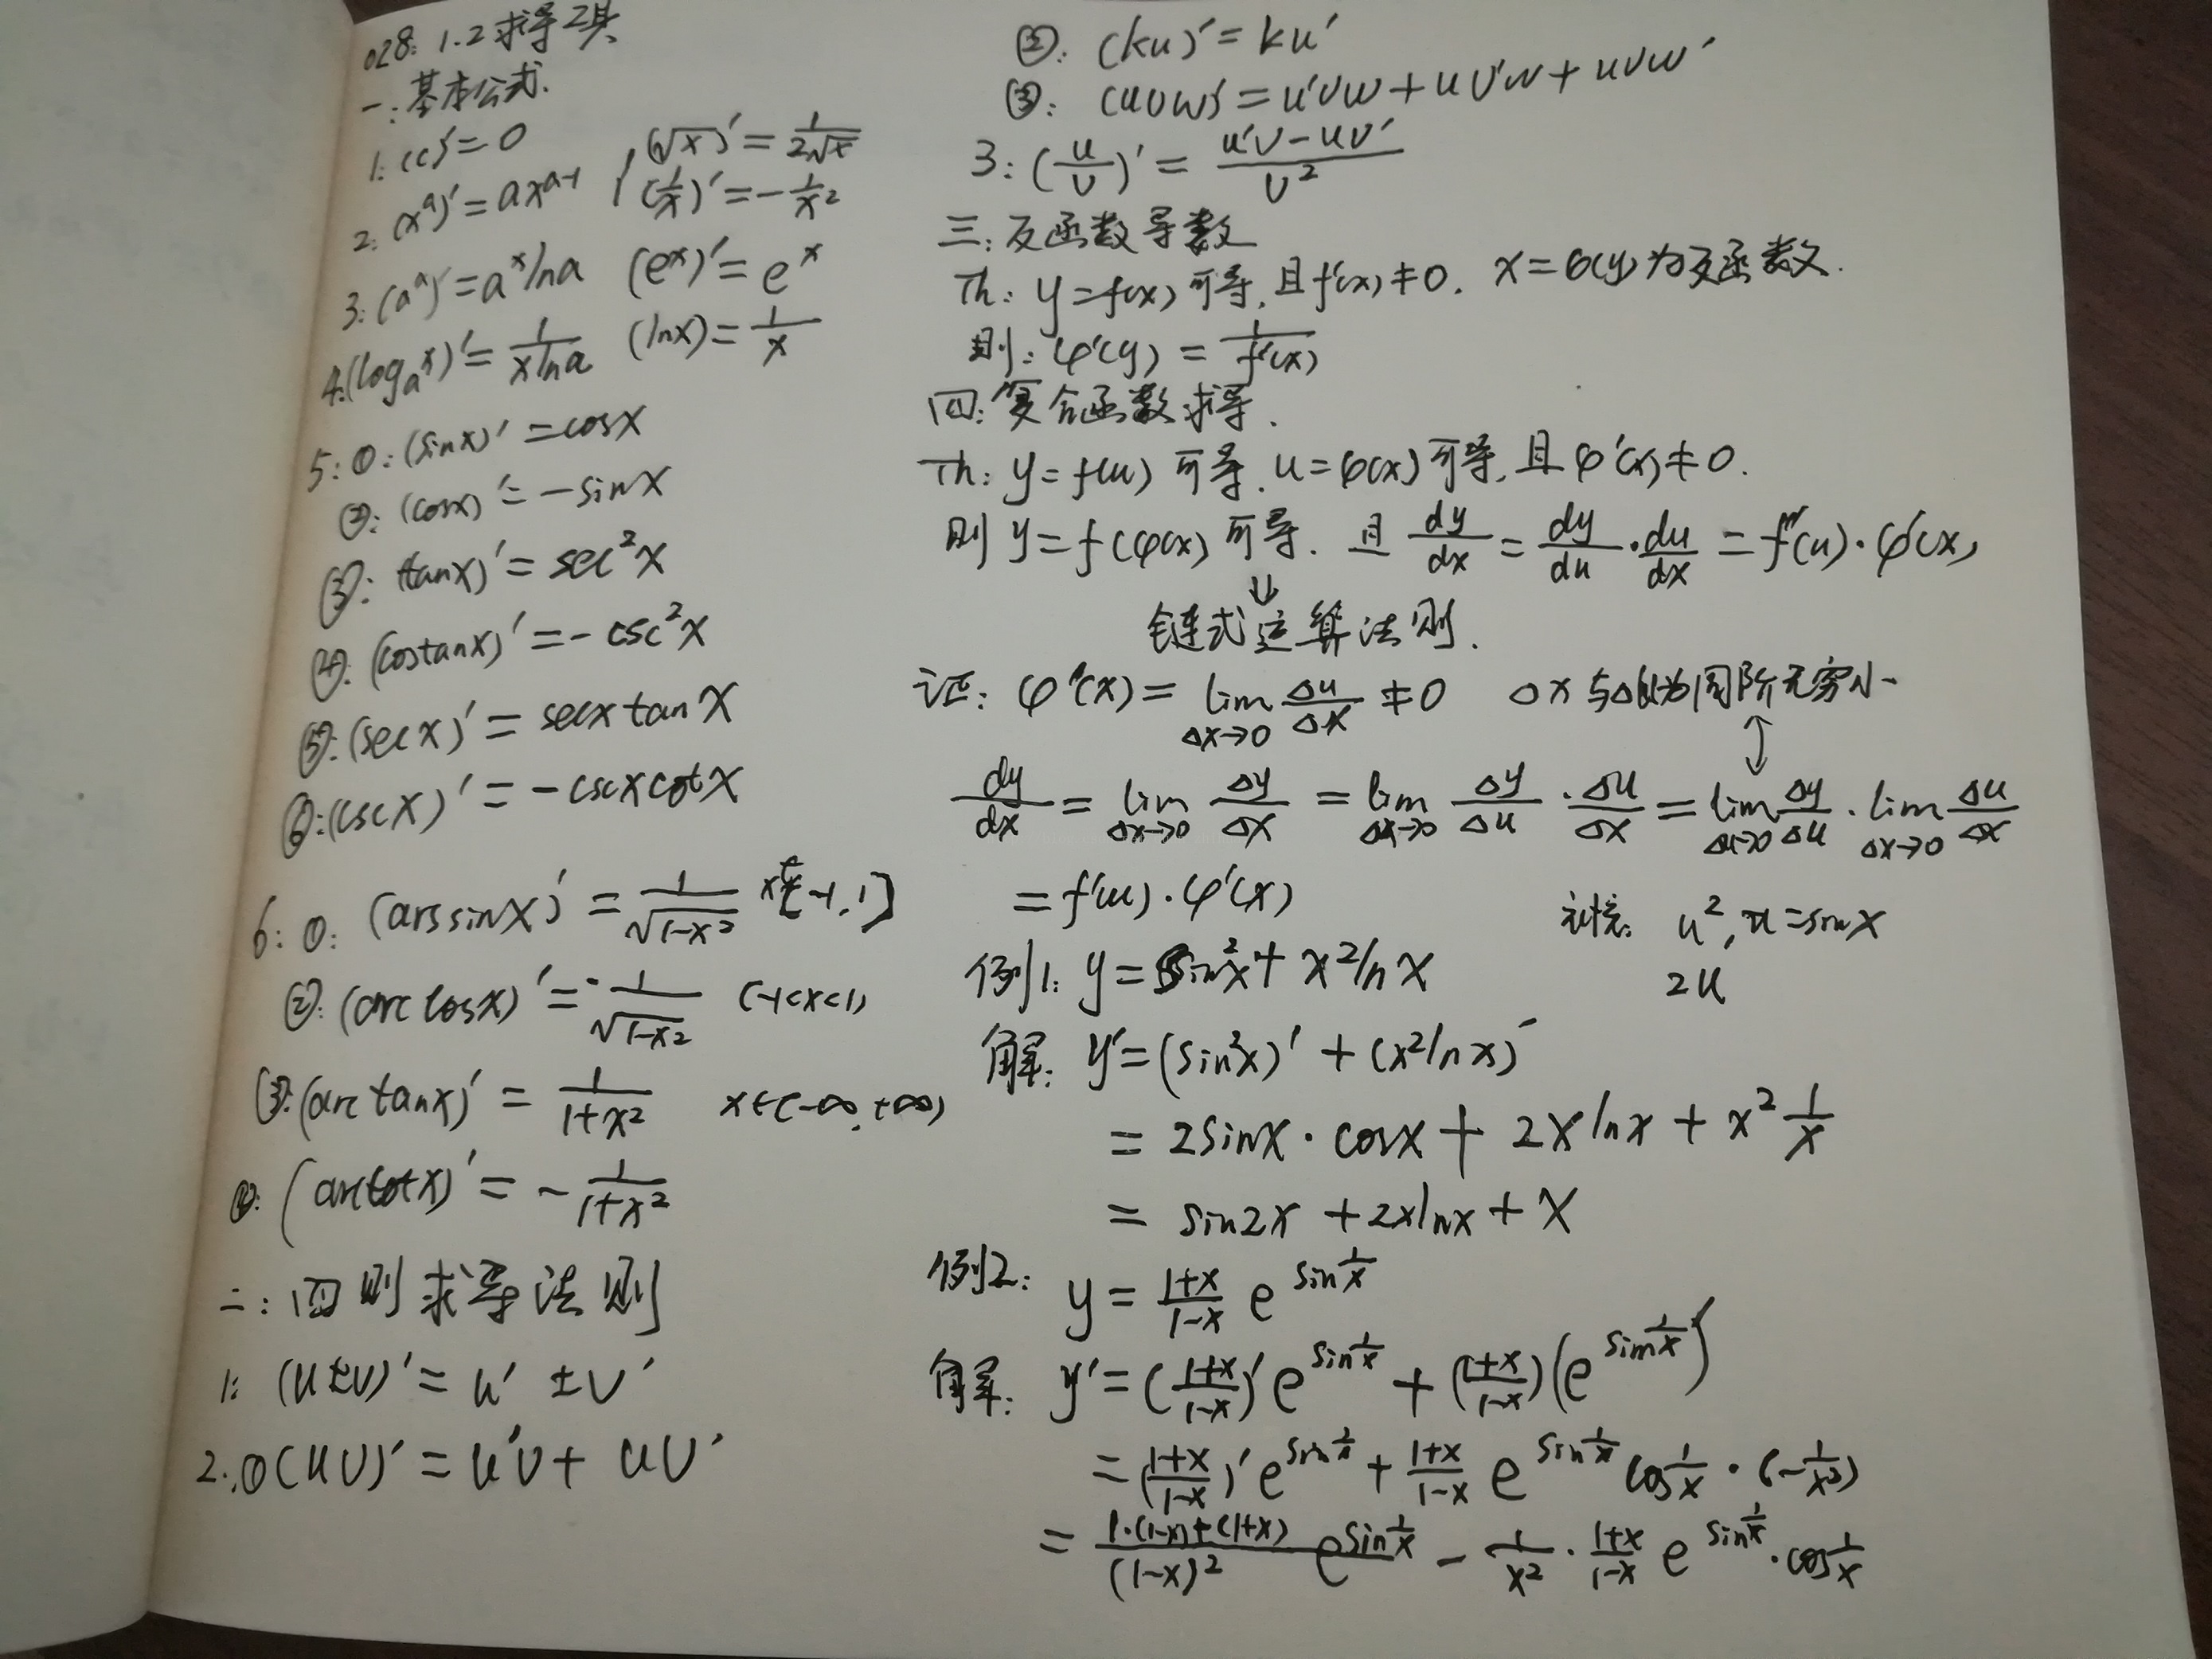 028: 1.2 求导工具
一: 基本公式.
1: (c)'=0
2: (x^a)'=ax^{a-1} , (√x)'=1/(2√x)
(1/x)'=-1/x²
3: (a^x)'=a^x lna (e^x)'=e^x
4: (log_a x)'=1/(xlna) (lnx)=1/x
5: ①: (sinx)'=cosx
②: (cosx)'=-sinx
③: (tanx)'=sec²x
④: (costanx)'=-csc²x
⑤: (secx)'=secxtanx
⑥: (cscx)'=-cscxcotx
6: ①: (arssinx)'=1/√(1-x²) x∈[-1,1]
②: (arccosx)'=-1/√(1-x²) (-1<x<1)
③: (arctanx)'=1/(1+x²) x∈(-∞,+∞)
④: (arccotx)'=-1/(1+x²)
二: 四则求导法则
1: (u±v)'=u'±v'
2: ①(uv)'=u'v+uv'
②: (ku)'=ku'
③: (uvw)'=u'vw+uv'w+uvw'
3: (u/v)'=(u'v-uv')/v²
三: 反函数导数
Th: y=f(x)可导,且f'(x)≠0. x=φ(y)为反函数.
则: φ'(y)=1/f'(x)
四: 复合函数求导.
Th: y=f(u)可导.u=φ(x)可导,且φ'(x)≠0.
则y=f(φ(x)可导. 且 dy/dx=dy/du·du/dx=f'(u)·φ'(x)
↓
链式运算法则.
证: φ'(x)=lim_{Δx→0} Δu/Δx≠0 Δx与Δu为同阶无穷小
↕
dy/dx=lim_{Δx→0} Δy/Δx=lim_{Δx→0} Δy/Δu·Δu/Δx=lim_{Δu→0} Δy/Δu·lim_{Δx→0} Δu/Δx
=f'(u)·φ'(x)
u²,u=sinx
例1: y=sin²x+x²lnx
2u
解: y'=(sin²x)'+(x²lnx)'
=2sinx·cosx+2xlnx+x² 1/x
=sin2x+2xlnx+x
例2: y=(1+x)/(1-x) e^{sin 1/x}
解: y'=((1+x)/(1-x))'e^{sin 1/x}+((1+x)/(1-x))(e^{sin 1/x})'
=((1+x)/(1-x))'e^{sin 1/x}+(1+x)/(1-x) e^{sin 1/x} cos 1/x·(-1/x²)
=(1·(1-x)+(1+x))/(1-x)² e^{sin 1/x}-1/x²·(1+x)/(1-x) e^{sin 1/x}·cos 1/x